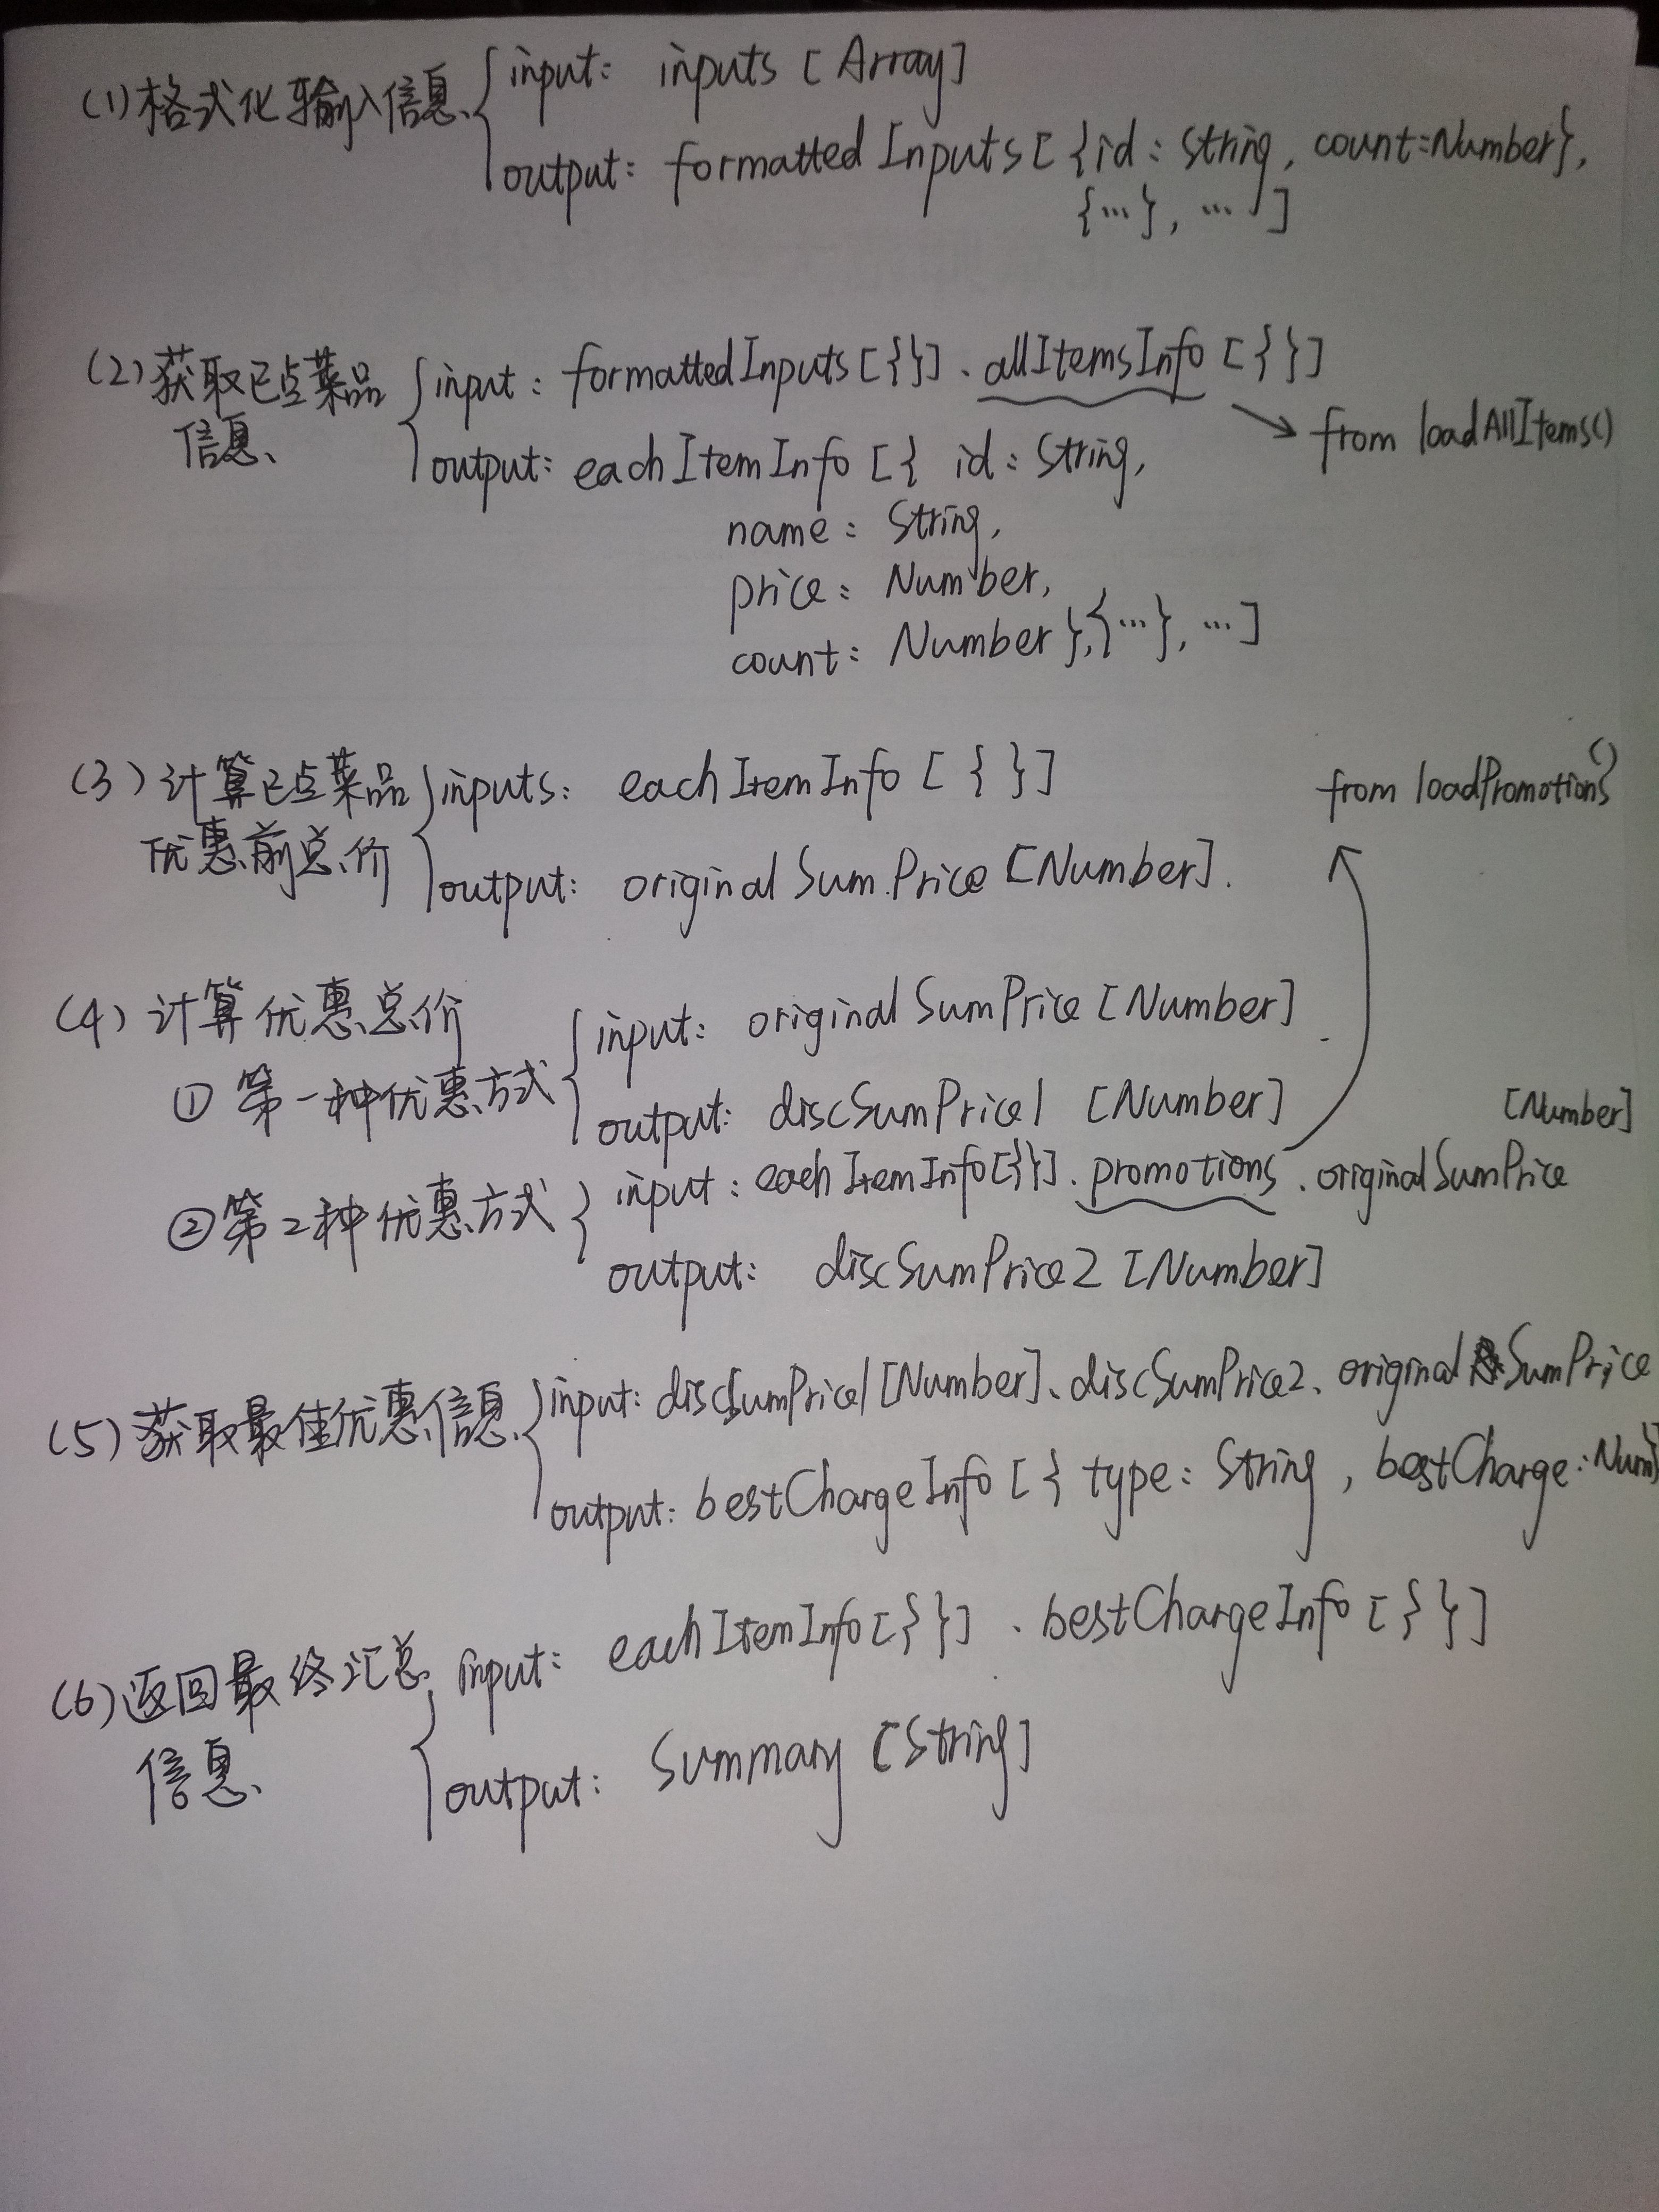 (1)格式化输入信息 input: inputs [Array]
output: formattedInputs [{id: String, count:Number},
{…}, … ]
(2)获取已点菜品 input: formattedInputs[{}]、allItemsInfo [{}]
信息 → from loadAllItems()
output: eachItemInfo [{ id: String,
name: String,
price: Number,
count: Number},{…}, …]
(3)计算已点菜品 inputs: eachItemInfo [{}]
from loadPromotions()
优惠前总价 output: originalSumPrice [Number].
(4)计算优惠总价
①第一种优惠方式 input: originalSumPrice [Number]
output: discSumPrice1 [Number]
[Number]
②第2种优惠方式 input: eachItemInfo[{}]、promotions、originalSumPrice
output: discSumPrice2 [Number]
(5)获取最佳优惠信息 input: discSumPrice1[Number]、discSumPrice2、originalSumPrice
output: bestChargeInfo [{ type: String, bestCharge: Num}
(6)返回最终汇总 input: eachItemInfo[{}]、bestChargeInfo[{}]
信息 output: Summary [String]